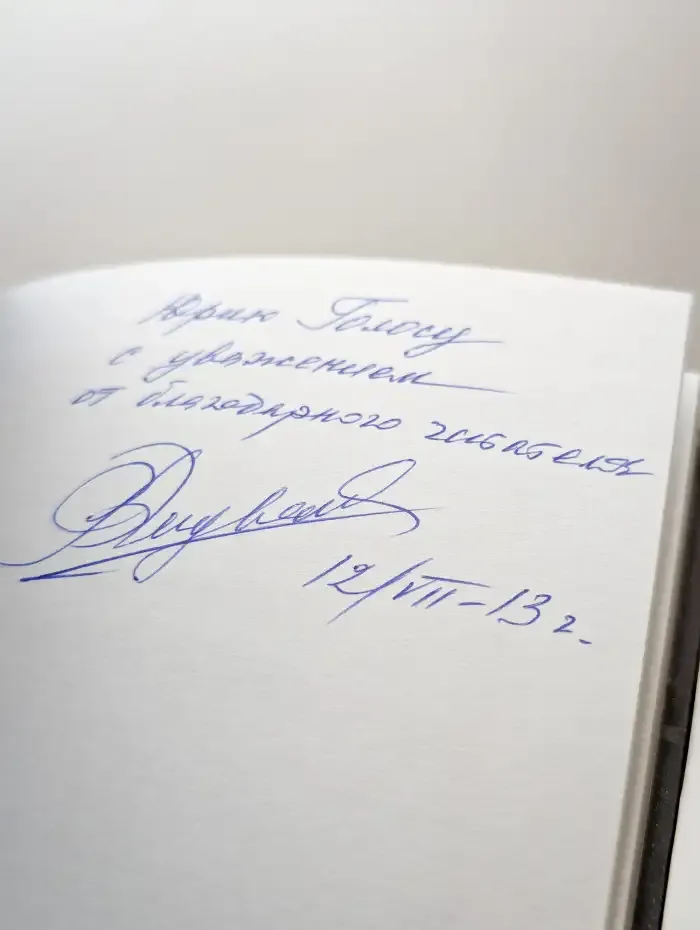 Юрию Голосу
с уважением
от благодарного читателя
12/VII-13 г.